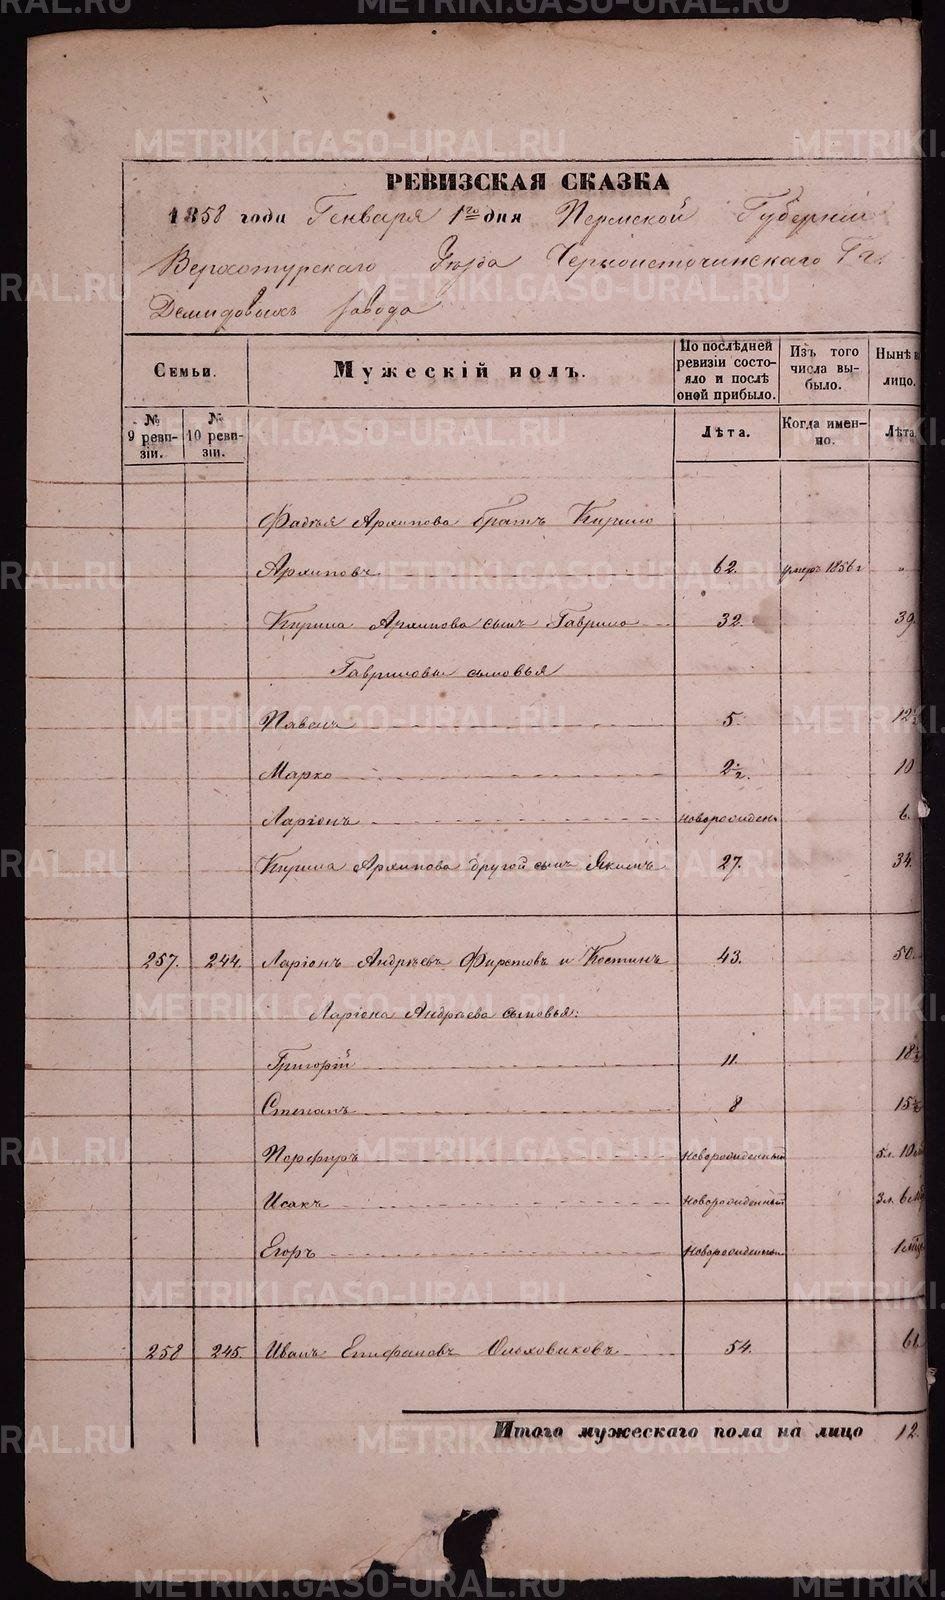 РЕВИЗСКАЯ СКАЗКА
1858 года Генваря 1го дня Пермской Губерніи
Верхотурскаго Уѣзда Черноисточинскаго Гг.
Демидовыхъ завода
Семьи.
Мужескій полъ.
По послѣдней ревизіи состояло и послѣ оной прибыло.
Изъ того числа выбыло.
Нынѣ на лицо.
№ 9 ревизіи.
№ 10 ревизіи.
Лѣта.
Когда именно.
Лѣта.
Фадѣя Архипова братъ Кирило
Архиповъ 62. умеръ 1856 г „
Кирила Архипова сынъ Гаврило 32. 39.
Гавриловы сыновья
Павелъ 5. 12½
Марко 2½. 10
Ларіонъ новорожден. 6.
Кирила Архипова другой сынъ Якимъ 27. 34.
257. 244. Ларіонъ Андрѣевъ Фирстовъ и Костинъ 43. 50.
Ларіона Андрѣева сыновья:
Григорій 11. 18½
Степанъ 8 15½
Порфиръ новорожденный 5 л. 10
Исакъ новорожденный 3 л. 6 мѣ
Егоръ новорожденный 1 мѣся
258 245. Иванъ Епифановъ Ольховиковъ 54. 61.
Итого мужескаго пола на лицо 12.
METRIKI.GASO-URAL.RU